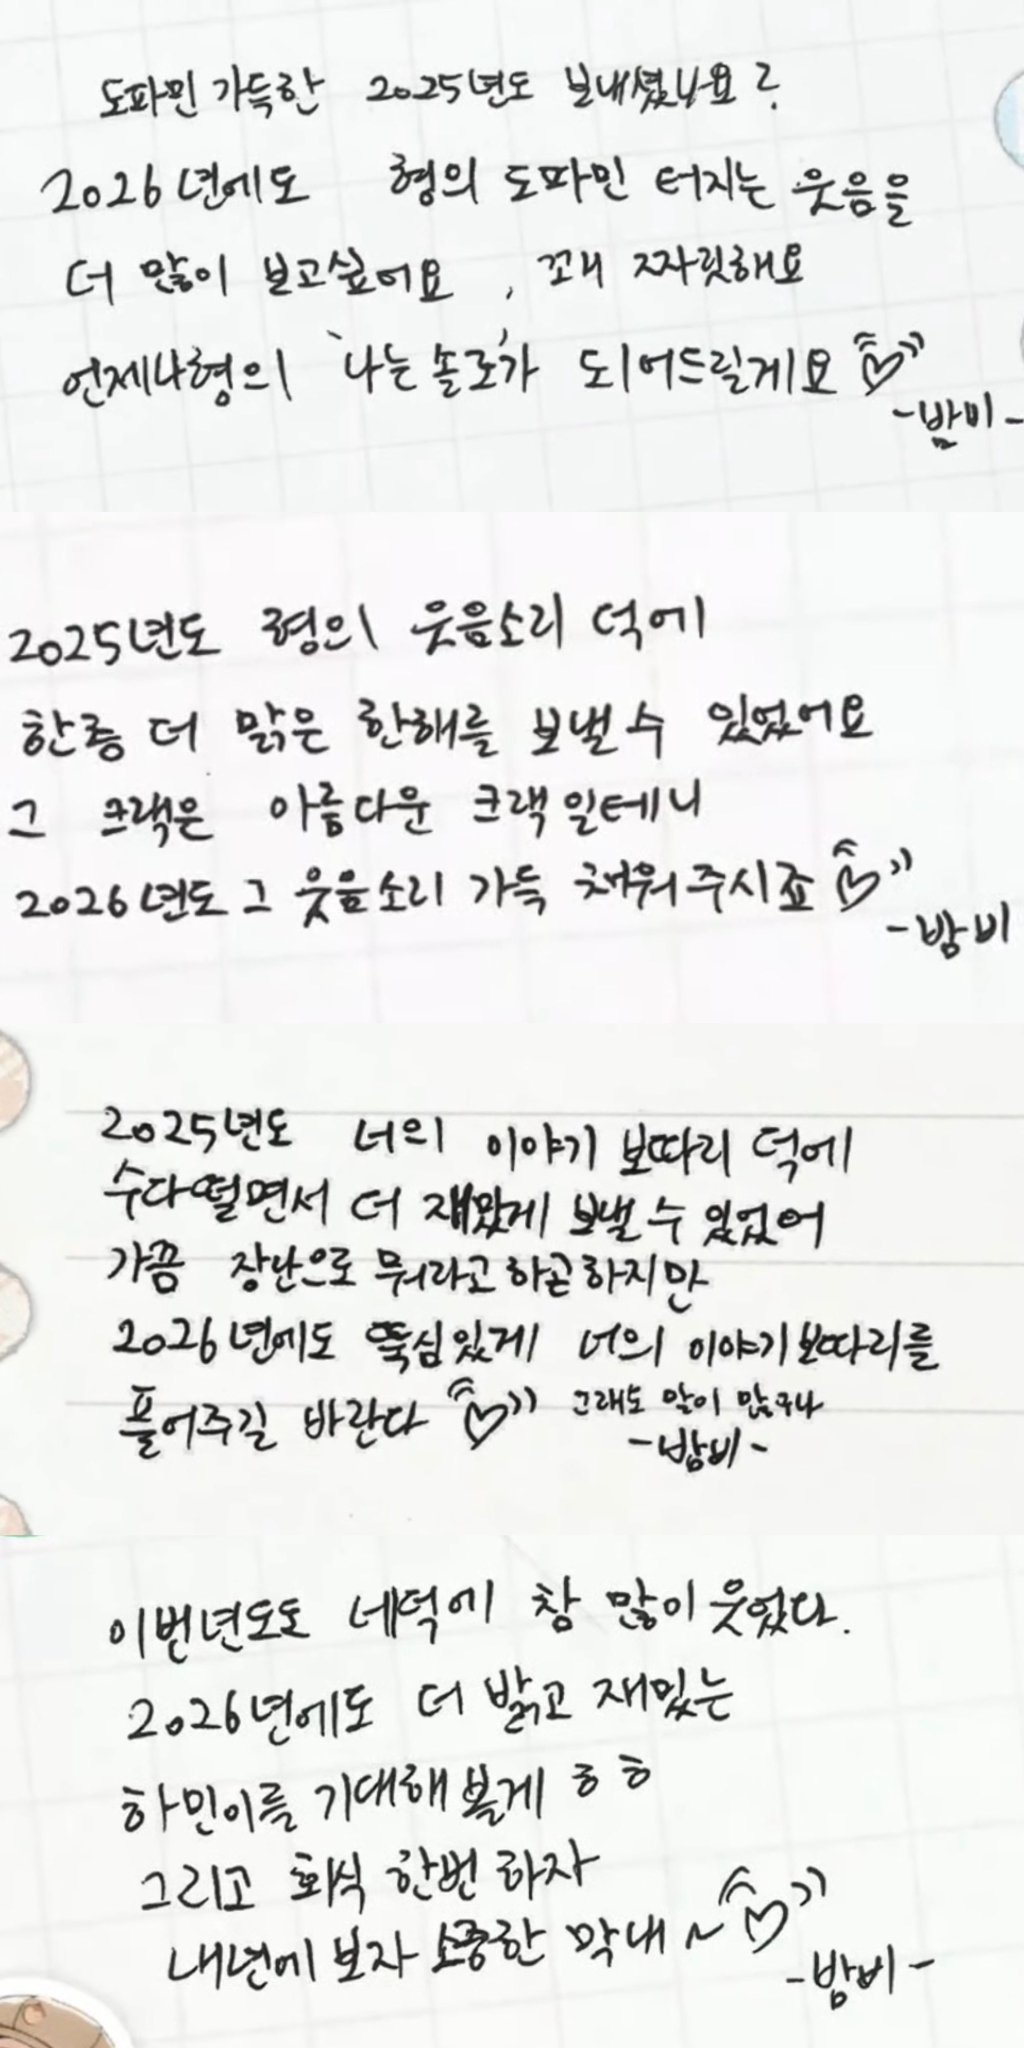 도파민 가득한 2025년도 보내셨나요?
2026년에도 형의 도파민 터지는 웃음을
더 많이 보고싶어요, 꼬니 짜릿해요
언제나형의 '나는솔로'가 되어드릴게요
-밤비-
2025년도 형의 웃음소리 덕에
한층 더 맑은 한해를 보낼수 있었어요
그 크랙은 아름다운 크랙일테니
2026년도 그 웃음소리 가득 채워주시죠
-밤비
2025년도 너의 이야기 보따리 덕에
수다떨면서 더 재밌게 보낼수 있었어
가끔 장난으로 뭐라고하곤하지만
2026년에도 뚝심있게 너의 이야기보따리를
풀어주길 바란다 그래도 말이 많구나
-밤비-
이번년도도 네덕에 참 많이 웃었다.
2026년에도 더 밝고 재밌는
하민이를 기대해볼게 ㅎㅎ
그리고 회식 한번 하자
내년에 보자 소중한 막내~
-밤비-